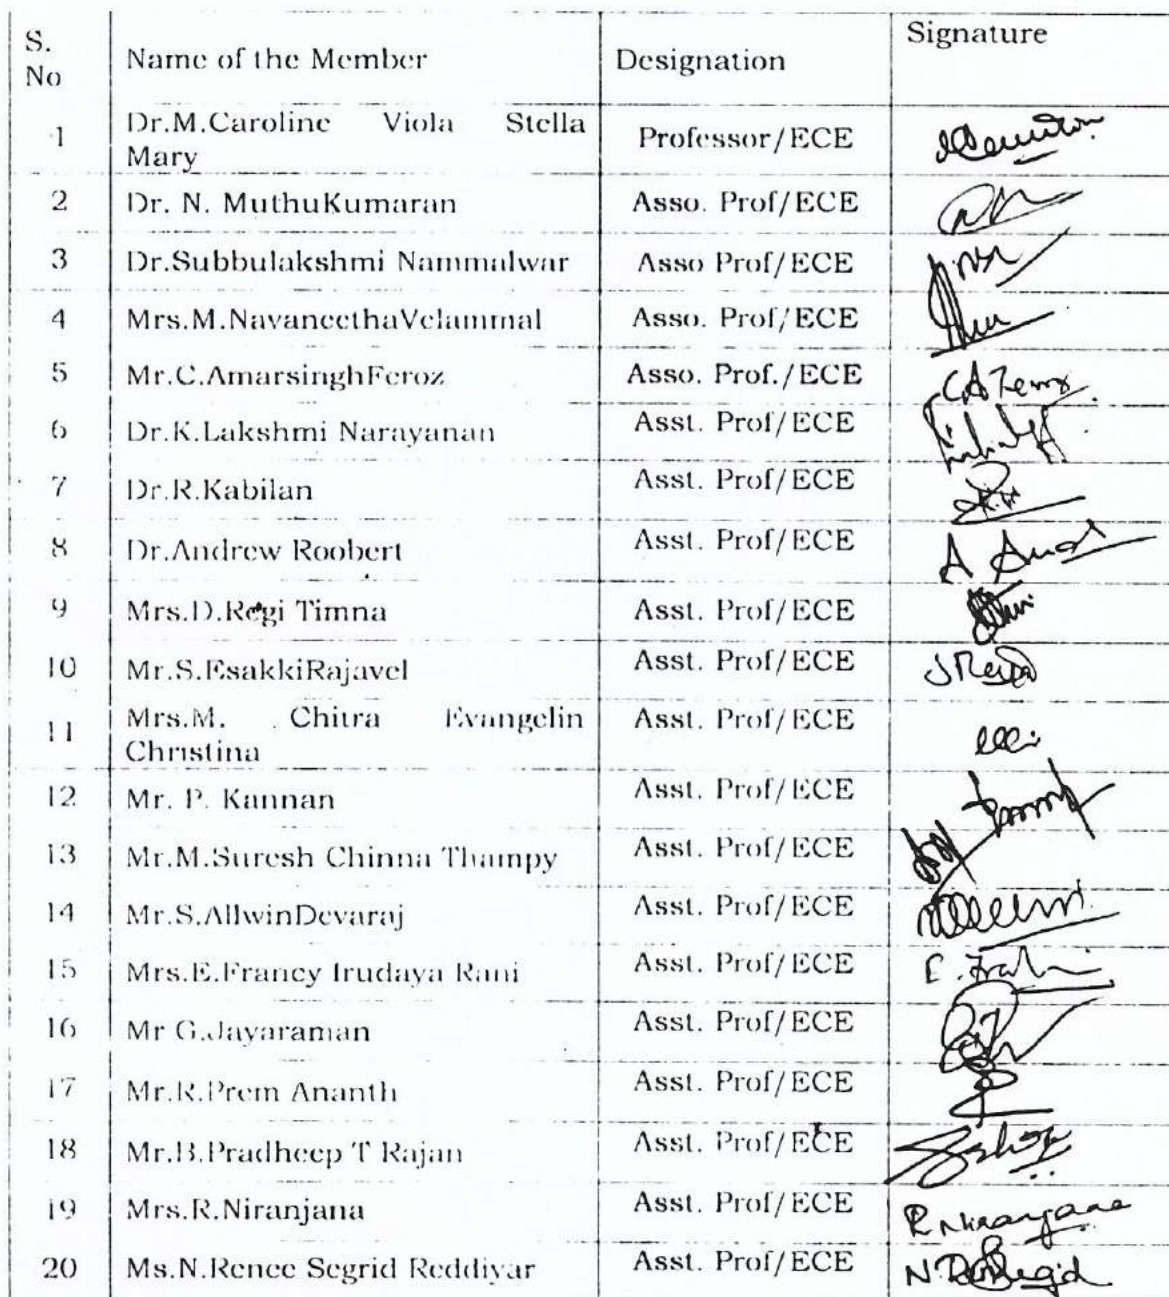 S. No Name of the Member Designation Signature
1 Dr.M.Caroline Viola Stella Mary Professor/ECE
2 Dr. N. MuthuKumaran Asso. Prof/ECE
3 Dr.Subbulakshmi Nammalwar Asso Prof/ECE
4 Mrs.M.NavaneethaVelammal Asso. Prof/ECE
5 Mr.C.AmarsinghFeroz Asso. Prof./ECE
6 Dr.K.Lakshmi Narayanan Asst. Prof/ECE
7 Dr.R.Kabilan Asst. Prof/ECE
8 Dr.Andrew Roobert Asst. Prof/ECE
9 Mrs.D.Regi Timna Asst. Prof/ECE
10 Mr.S.EsakkiRajavel Asst. Prof/ECE
11 Mrs.M. Chitra Evangelin Christina Asst. Prof/ECE
12 Mr. P. Kannan Asst. Prof/ECE
13 Mr.M.Suresh Chinna Thampy Asst. Prof/ECE
14 Mr.S.AllwinDevaraj Asst. Prof/ECE
15 Mrs.E.Francy Irudaya Rani Asst. Prof/ECE
16 Mr G.Jayaraman Asst. Prof/ECE
17 Mr.R.Prem Ananth Asst. Prof/ECE
18 Mr.B.Pradheep T Rajan Asst. Prof/ECE
19 Mrs.R.Niranjana Asst. Prof/ECE R Niranjana
20 Ms.N.Renee Segrid Reddiyar Asst. Prof/ECE